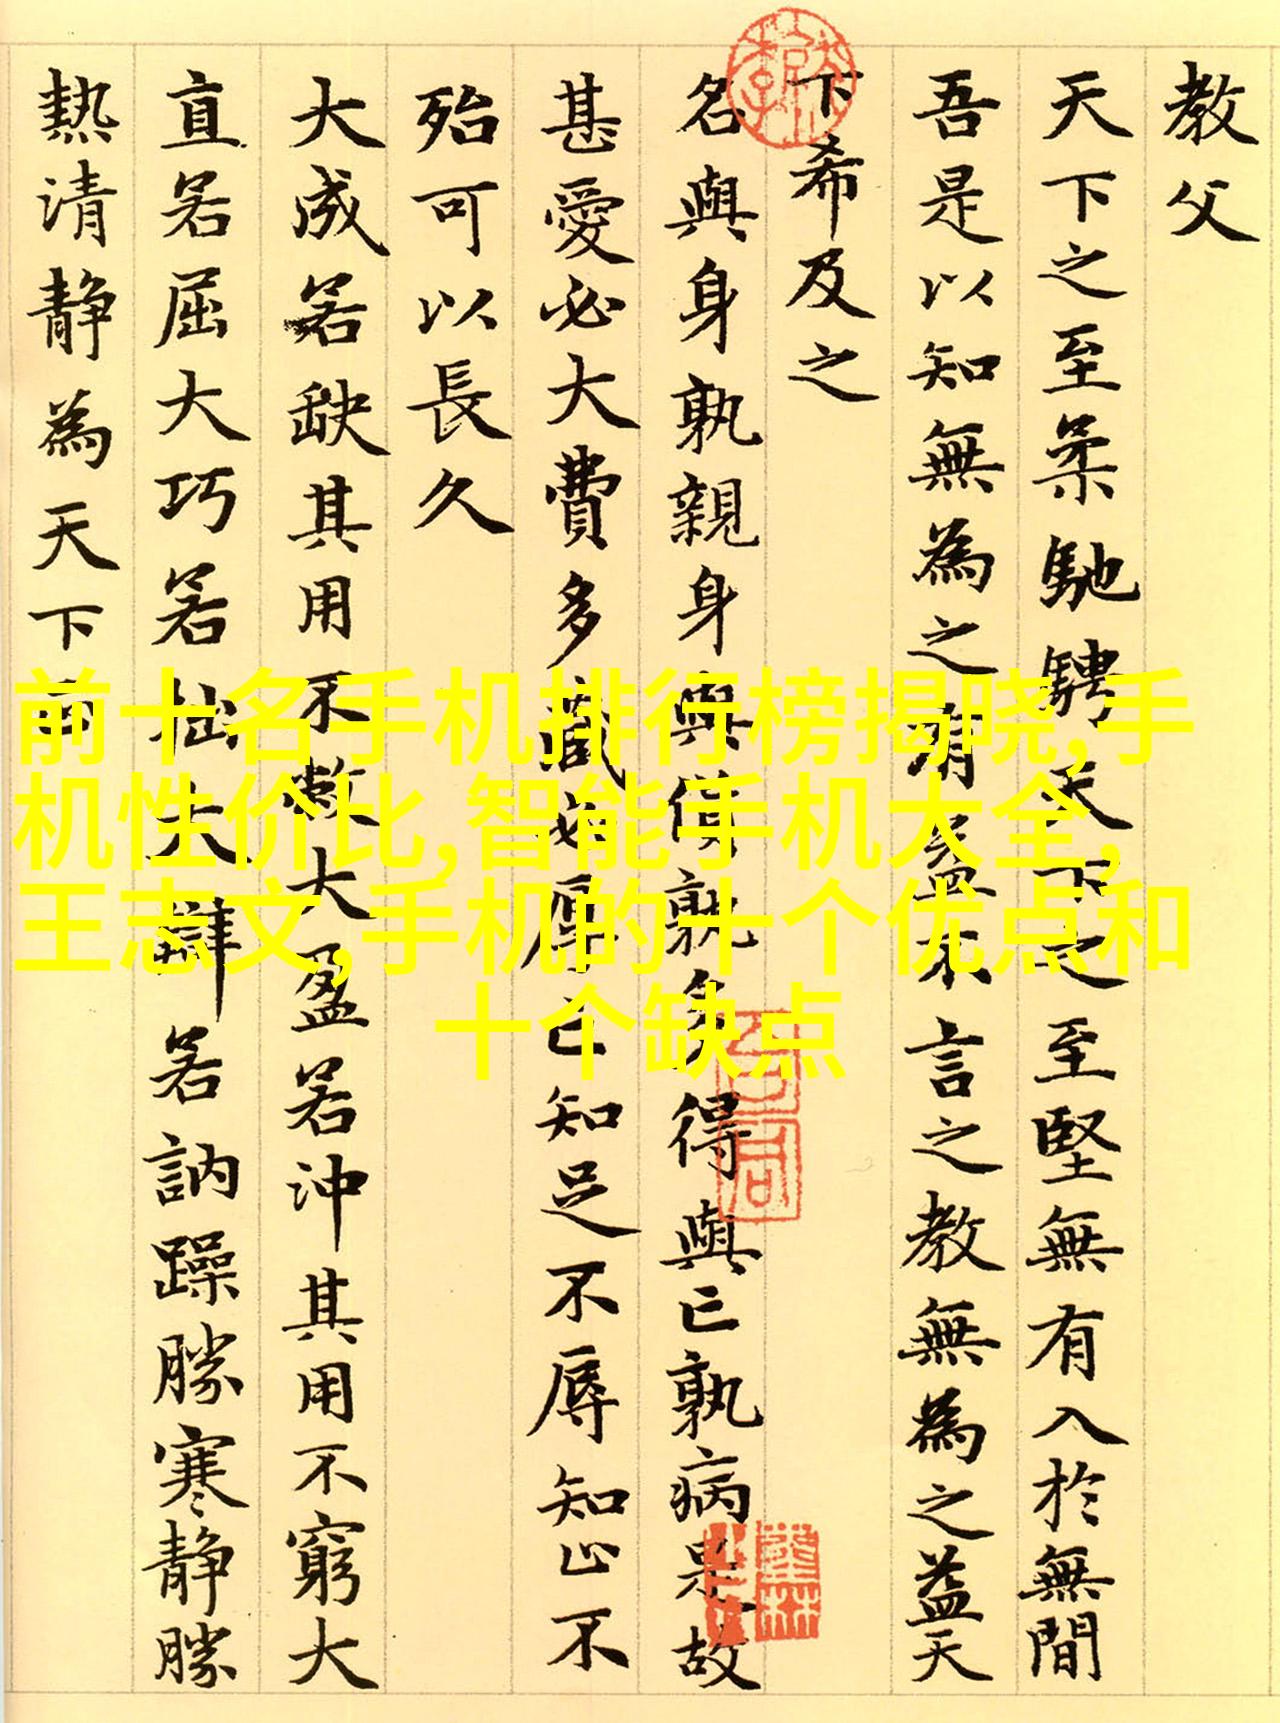 教父
天下之至柔馳騁天下之至堅無有入於無間
吾是以知無為之有益不言之教無為之益天
下希及之
名與身孰親身與貨孰多得與亡孰病是故
甚愛必大費多藏必厚亡知足不辱知止不
殆可以長久
大成若缺其用不敝大盈若沖其用不窮大
直若屈大巧若拙大辯若訥躁勝寒静勝
熱清静為天下正
前十名手机排行榜揭晓,手
机性价比,智能手机大全,
王志文,手机的十个优点和
十个缺点